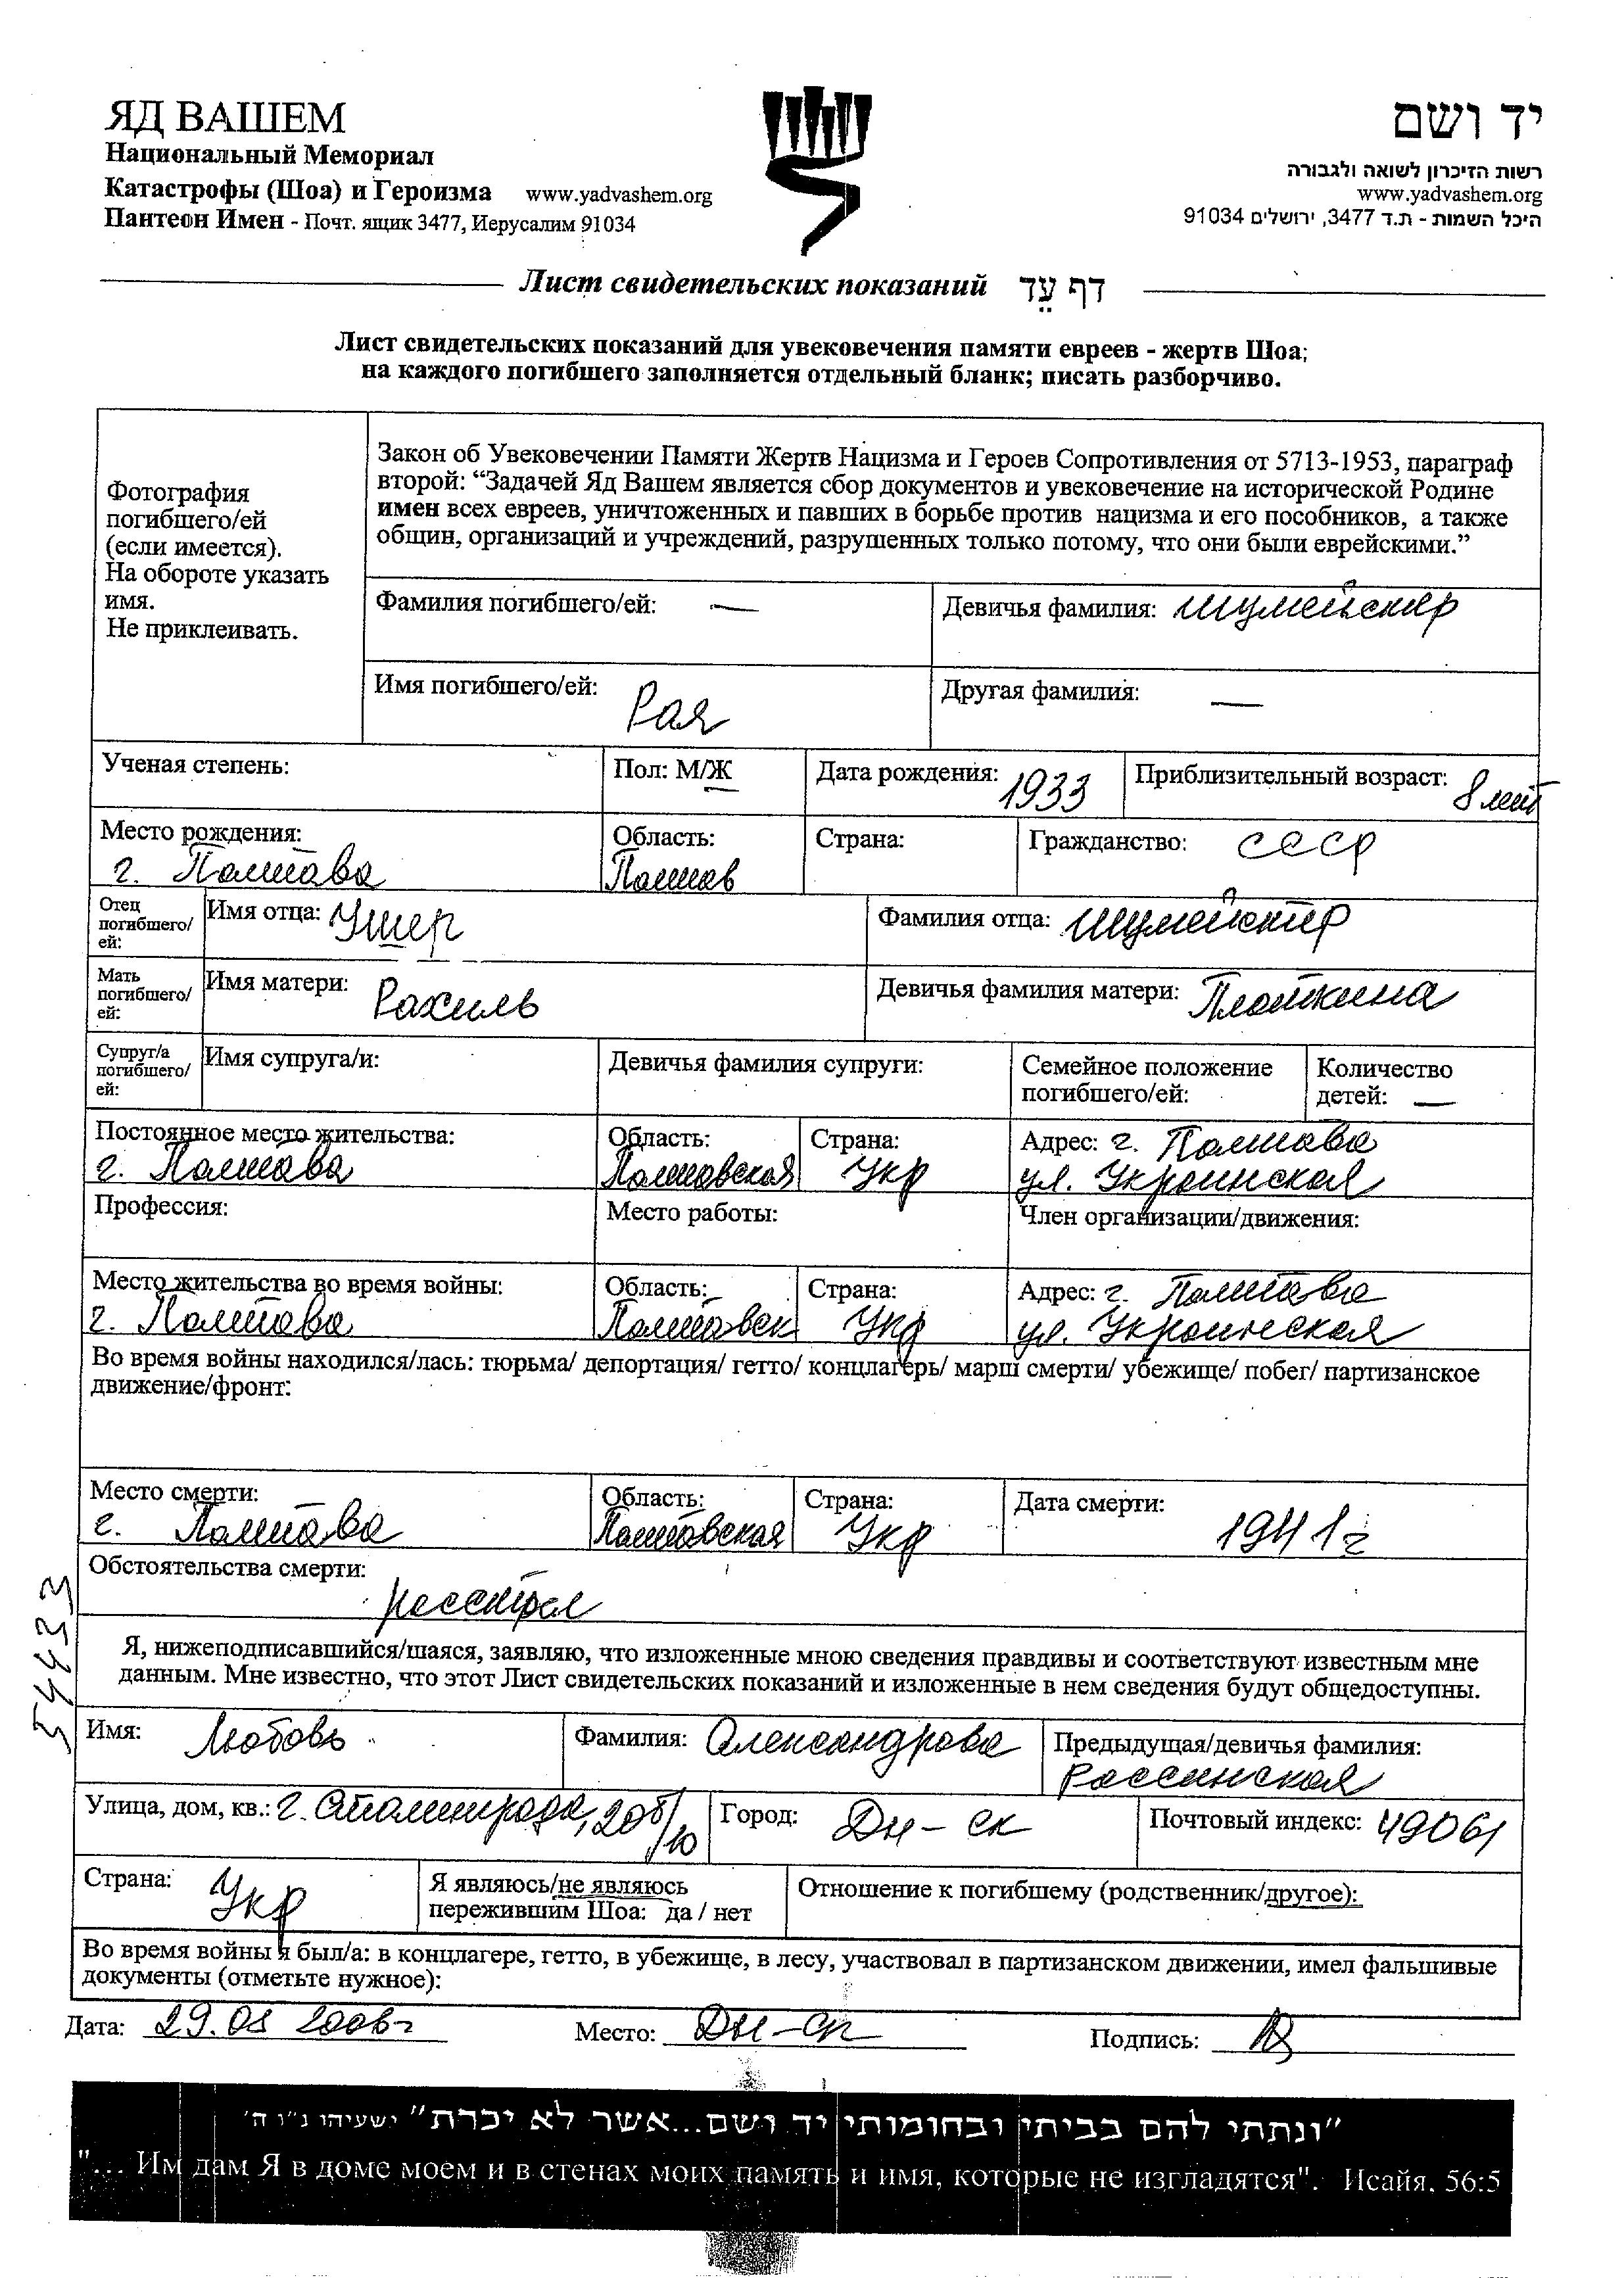 ЯД ВАШЕМ
Национальный Мемориал
Катастрофы (Шоа) и Героизма www.yadvashem.org
Пантеон Имен - Почт. ящик 3477, Иерусалим 91034
יד ושם
רשות הזיכרון לשואה ולגבורה
www.yadvashem.org
היכל השמות - ת.ד 3477, ירושלים 91034
Лист свидетельских показаний דף עֵד
Лист свидетельских показаний для увековечения памяти евреев - жертв Шоа;
на каждого погибшего заполняется отдельный бланк; писать разборчиво.
Фотография
погибшего/ей
(если имеется).
На обороте указать
имя.
Не приклеивать.
Закон об Увековечении Памяти Жертв Нацизма и Героев Сопротивления от 5713-1953, параграф
второй: “Задачей Яд Вашем является сбор документов и увековечение на исторической Родине
имен всех евреев, уничтоженных и павших в борьбе против нацизма и его пособников, а также
общин, организаций и учреждений, разрушенных только потому, что они были еврейскими.”
Фамилия погибшего/ей: — Девичья фамилия: Шумейстер
Имя погибшего/ей: Рая Другая фамилия: —
Ученая степень: Пол: М/Ж Дата рождения: 1933 Приблизительный возраст: 8 лет
Место рождения: Область: Страна: Гражданство: СССР
г. Полтава Полтав
Отец погибшего/ей: Имя отца: Ушер Фамилия отца: Шумейстер
Мать погибшего/ей: Имя матери: Рахиль Девичья фамилия матери: Плоткина
Супруг/а погибшего/ей: Имя супруга/и: Девичья фамилия супруги: Семейное положение погибшего/ей: Количество детей: —
Постоянное место жительства: Область: Страна: Адрес: г. Полтава
г. Полтава Полтавская Укр ул. Украинская
Профессия: Место работы: Член организации/движения:
Место жительства во время войны: Область: Страна: Адрес: г. Полтава
г. Полтава Полтавск Укр ул. Украинская
Во время войны находился/лась: тюрьма/ депортация/ гетто/ концлагерь/ марш смерти/ убежище/ побег/ партизанское
движение/фронт:
Место смерти: Область: Страна: Дата смерти: 1941 г
г. Полтава Полтавская Укр
Обстоятельства смерти:
расстрел
54433
Я, нижеподписавшийся/шаяся, заявляю, что изложенные мною сведения правдивы и соответствуют известным мне
данным. Мне известно, что этот Лист свидетельских показаний и изложенные в нем сведения будут общедоступны.
Имя: Любовь Фамилия: Александрова Предыдущая/девичья фамилия:
Рассинская
Улица, дом, кв.: г. Сталинграда, 20б/10 Город: Дн-ск Почтовый индекс: 49061
Страна: Укр Я являюсь/не являюсь Отношение к погибшему (родственник/другое):
пережившим Шоа: да / нет
Во время войны я был/а: в концлагере, гетто, в убежище, в лесу, участвовал в партизанском движении, имел фальшивые
документы (отметьте нужное):
Дата: 29.08 2006г Место: Дн-ск Подпись:
"ונתתי להם בביתי ובחומותי יד ושם...אשר לא יכרת" ישעיהו נ"ו ה'
"... Им дам Я в доме моем и в стенах моих память и имя, которые не изгладятся". Исайя, 56:5